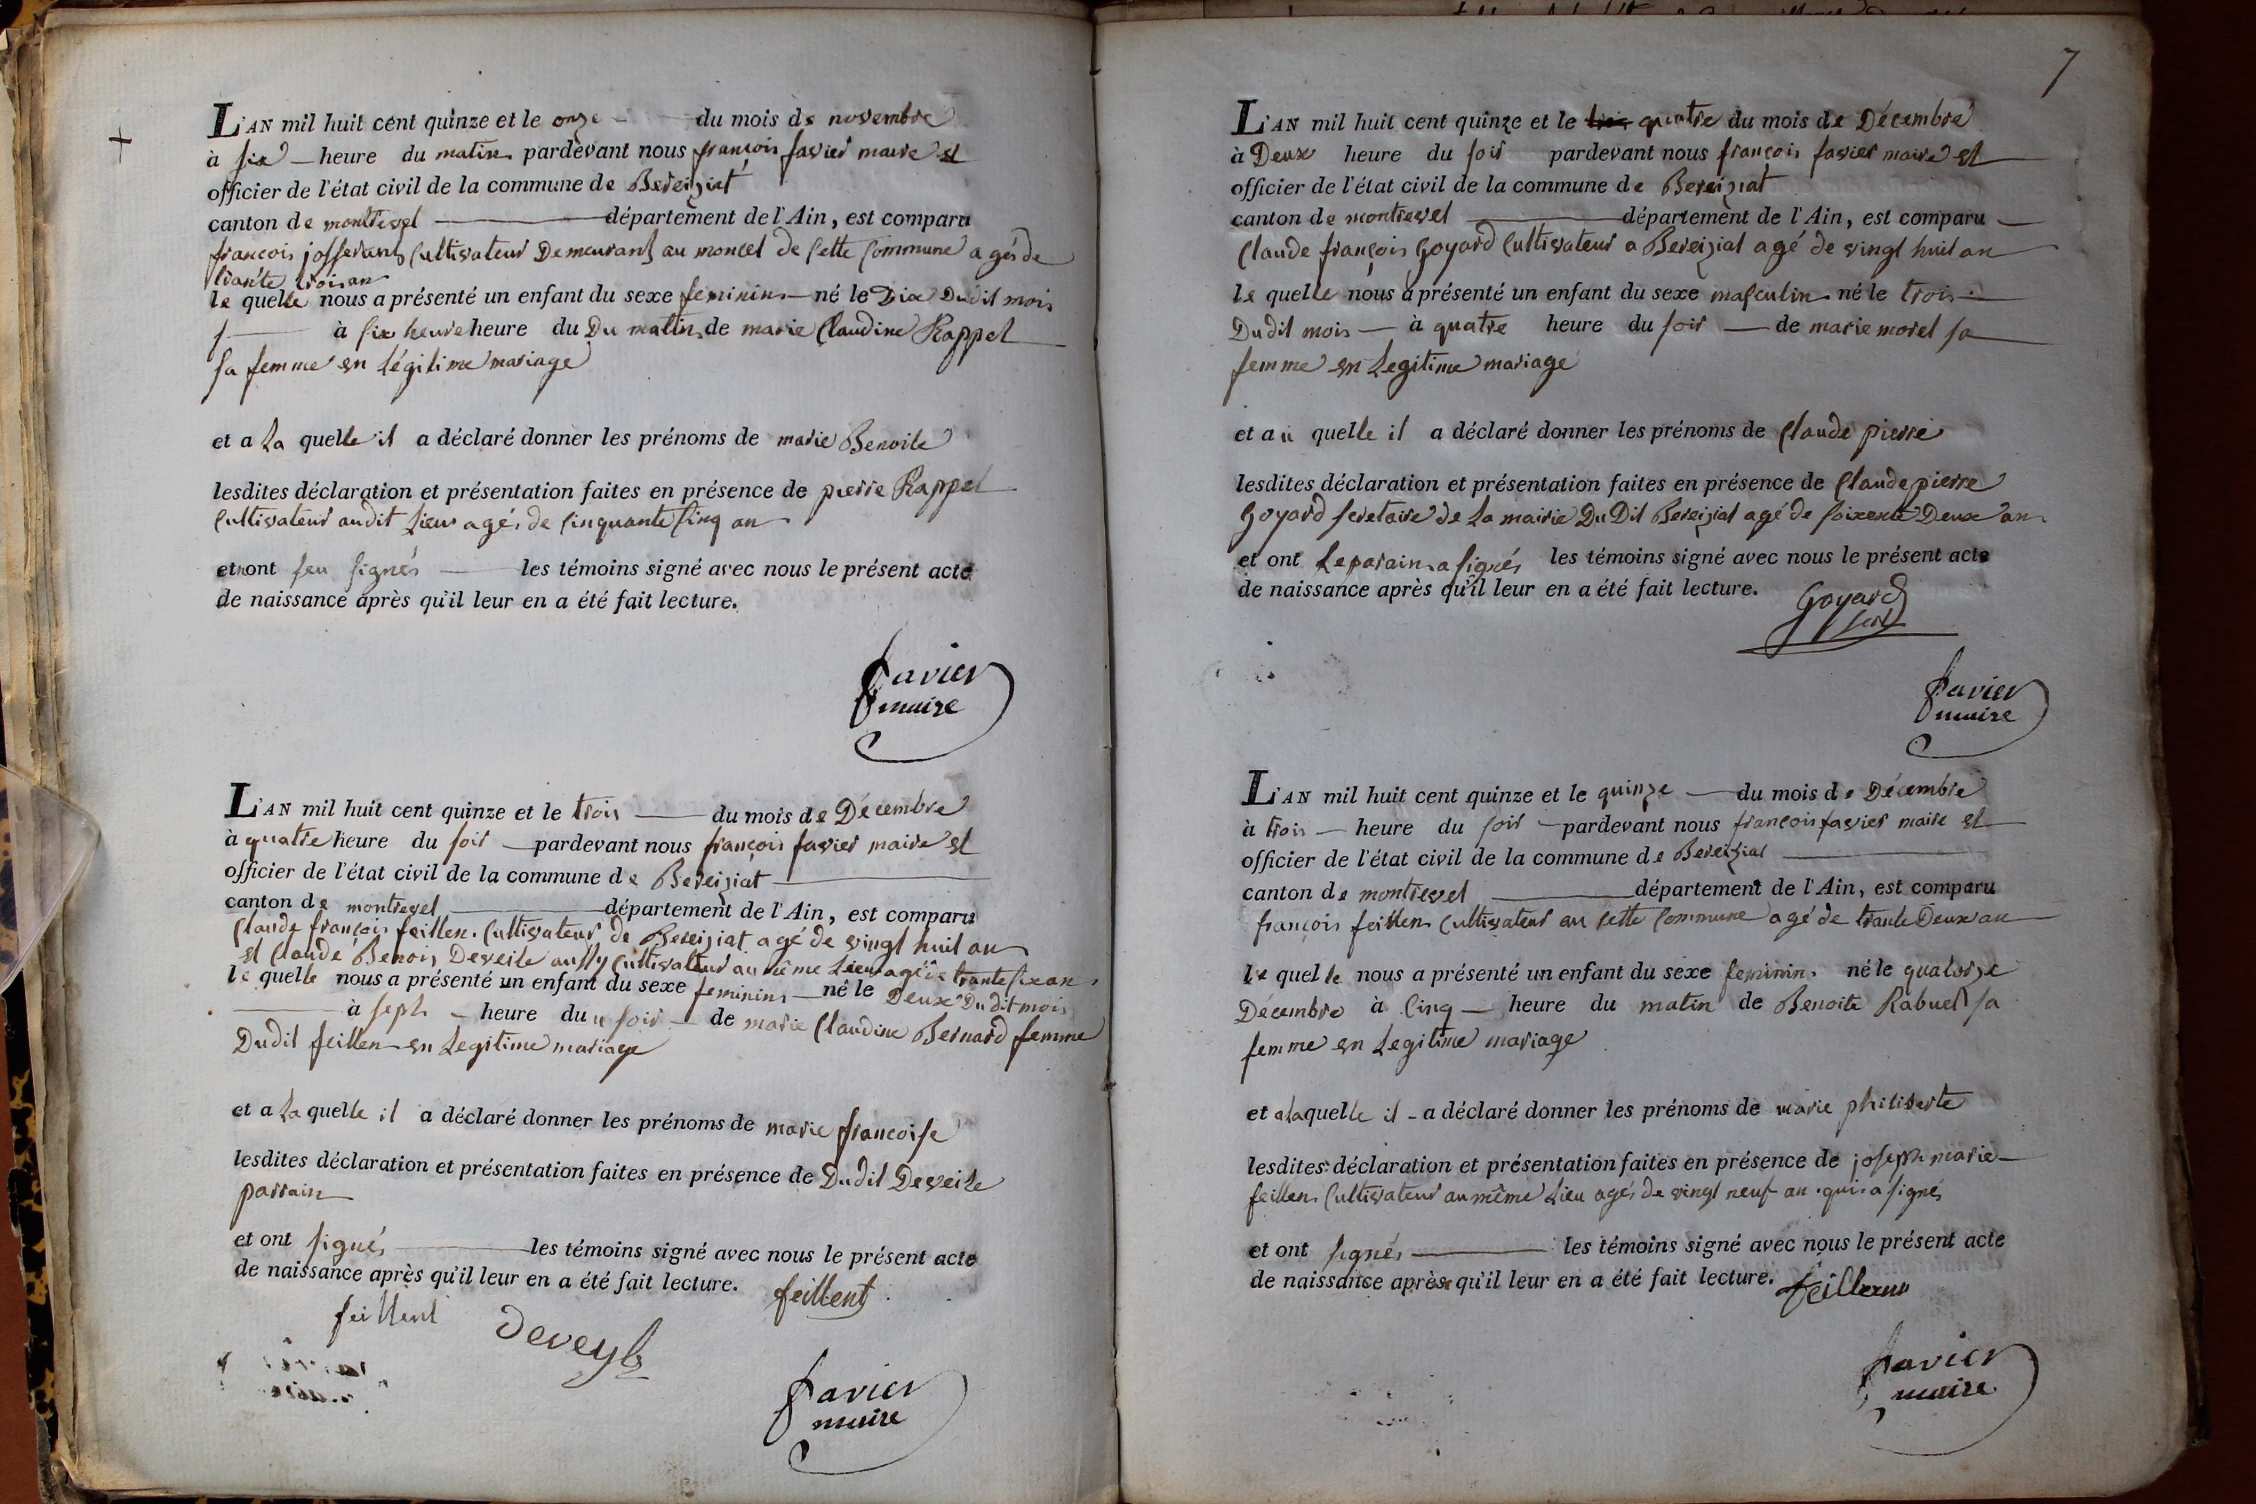 L'AN mil huit cent quinze et le onze du mois de novembre
à six heure du matin pardevant nous françois favier maire et
officier de l'état civil de la commune de Bereiziat
canton de montrevel département de l'Ain, est comparu
francois josserand Cultivateur Demeurant au moncel de Cette Commune agés de
trante trois an
le quelle nous a présenté un enfant du sexe feminin né le Dix Dudit mois
à six heure heure du Du matin de marie Claudine Rappet
sa femme en Légitime mariage
et a La quelle il a déclaré donner les prénoms de marie Benoite
lesdites déclaration et présentation faites en présence de pierre Rappet
Cultivateur audit Lieu agés de Cinquante Cinq an
et nont seu signés les témoins signé avec nous le présent acte
de naissance après qu'il leur en a été fait lecture.
favier
maire
L'AN mil huit cent quinze et le trois du mois de Décembre
à quatre heure du soir pardevant nous françois favier maire et
officier de l'état civil de la commune de Bereiziat
canton de montrevel département de l'Ain, est comparu
Claude françois feillen Cultivateur de Bereiziat agé de vingt huit an
et Claude Benois Deveile aussy Cultivateur au même Lieu agé de trante six an
le quelle nous a présenté un enfant du sexe feminin né le Deux Dudit mois
à sept heure du u soir de marie Claudine Bernard femme
Dudit feillen en Legitime mariage
et a La quelle il a déclaré donner les prénoms de marie francoise
lesdites déclaration et présentation faites en présence de Dudit Deveile
parrain
et ont signés les témoins signé avec nous le présent acte
de naissance après qu'il leur en a été fait lecture. feillent
feillent deveyle
favier
maire
7
L'AN mil huit cent quinze et le trois quatre du mois de Décembre
à Deux heure du soir pardevant nous françois favier maire et
officier de l'état civil de la commune de Bereiziat
canton de montrevel département de l'Ain, est comparu
Claude françois Goyard Cultivateur a Bereiziat agé de vingt huit an
le quelle nous a présenté un enfant du sexe masculin né le trois
Dudit mois à quatre heure du soir de marie morel sa
femme en Legitime mariage
et a u quelle il a déclaré donner les prénoms de Claude pierre
lesdites déclaration et présentation faites en présence de Claude pierre
Goyard secretaire de La mairie Du Dit Bereiziat agé de soixente Deux an
et ont Le parain a signés les témoins signé avec nous le présent acte
de naissance après qu'il leur en a été fait lecture. Goyard
favier
maire
L'AN mil huit cent quinze et le quinze du mois de Décembre
à trois heure du soir pardevant nous françois favier maire et
officier de l'état civil de la commune de Bereiziat
canton de montrevel département de l'Ain, est comparu
françois feillen Cultivateur en Cette Commune agé de trante Deux an
le quelle nous a présenté un enfant du sexe feminin né le quatorze
Décembre à Cinq heure du matin de Benoite Rabuel sa
femme en Legitime mariage
et a la quelle il a déclaré donner les prénoms de marie philiberte
lesdites déclaration et présentation faites en présence de joseph marie
feillen Cultivateur au même Lieu agés de vingt neuf an qui a signés
et ont signés les témoins signé avec nous le présent acte
de naissance après qu'il leur en a été fait lecture. feillens
favier
maire